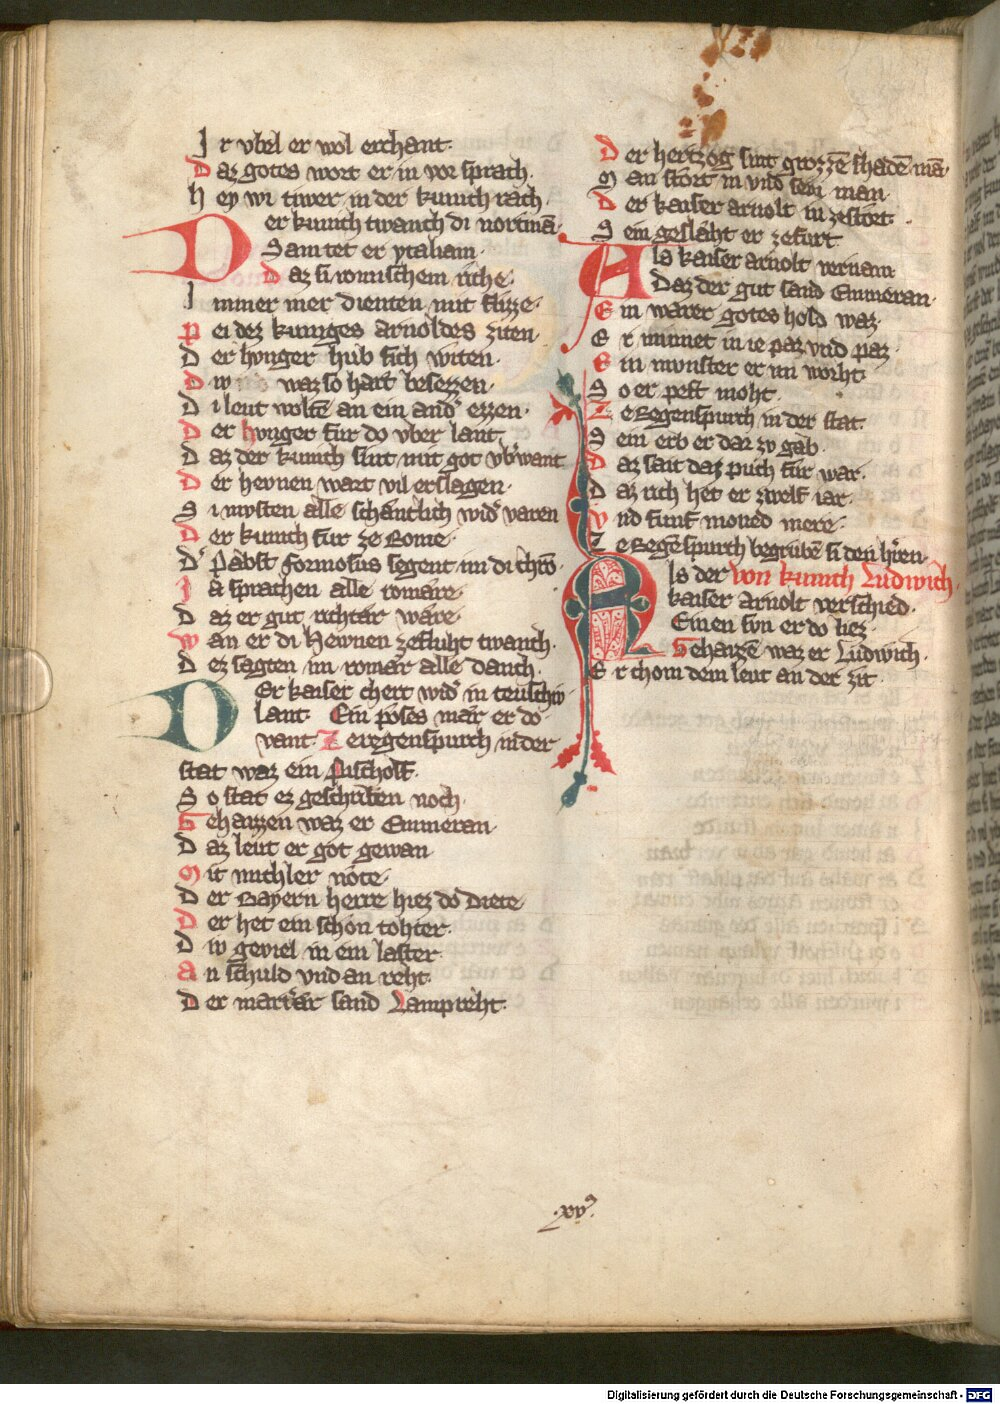 Ir vbel er wol erchant·
Daz gotes wort er in vor sprach·
Hey wi tiwer in der kunich rach·
Der kunich twanch di nortmā·
Samtet er ytaliam·
Daz si romischem riche·
Immer mer dienten mit flizze·
Pei dez kuniges arnoldes ziten·
Der hunger hub sich witen·
Div waz so hart besezzen·
Di leut woltē an ein and' ezzen·
Der hunger fur do vber lant·
Daz der kunich sint mit got vb'want
Der hevnen wart vil erslagen·
Si mvsten alle schantlich wid' varen
Der kunich fur ze Rome·
D' Pabst formosus segent im di chrō·
Ia sprachen alle romare·
Daz er gut richtar ware·
Wan er di Hewnen ze fluht twanch·
Dez sagten im romar alle danch·
Der kaiser chert wid' in teuschiv
lant· Ein poses mar er do
vant· Ze regenspurch in der
stat waz ein Pischolf·
So stat ez geschriben noch·
Geharzzen waz er Emmeran·
Daz leut er got gewan
Mit michler note·
Der Bayern herre hiez do Diete
Der het ein schon tohter·
Div geviel in ein laster
An schuld vnd an reht·
Der martrar sand Lampreht·
Der hertzog sint grozzē shadē nā
Man stort in vnd sein man·
Der kaiser arnolt in zestort·
Sein geslaht er zefurt
Als kaiser arnolt vernam
Daz der gut sand Emmeran·
Ein warer gotes hold waz·
Er minnet in ie paz vnd paz·
Ein munster er im worht
So er pest moht·
Ze Regenspurch in der stat·
Sein erb er dar zv gab·
Daz sait daz puch fur war·
Daz rich het er zwelf iar·
Vnd funf moned mere·
Ze Regēspurch begrubē si den h'ren·
Als der von kunich Ludwich·
kaiser Arnolt verschied·
Einen svn er do liez·
Geharzē waz er Ludwich·
Er chom dem leut an der zit
·xv·
Digitalisierung gefördert durch die Deutsche Forschungsgemeinschaft - DFG